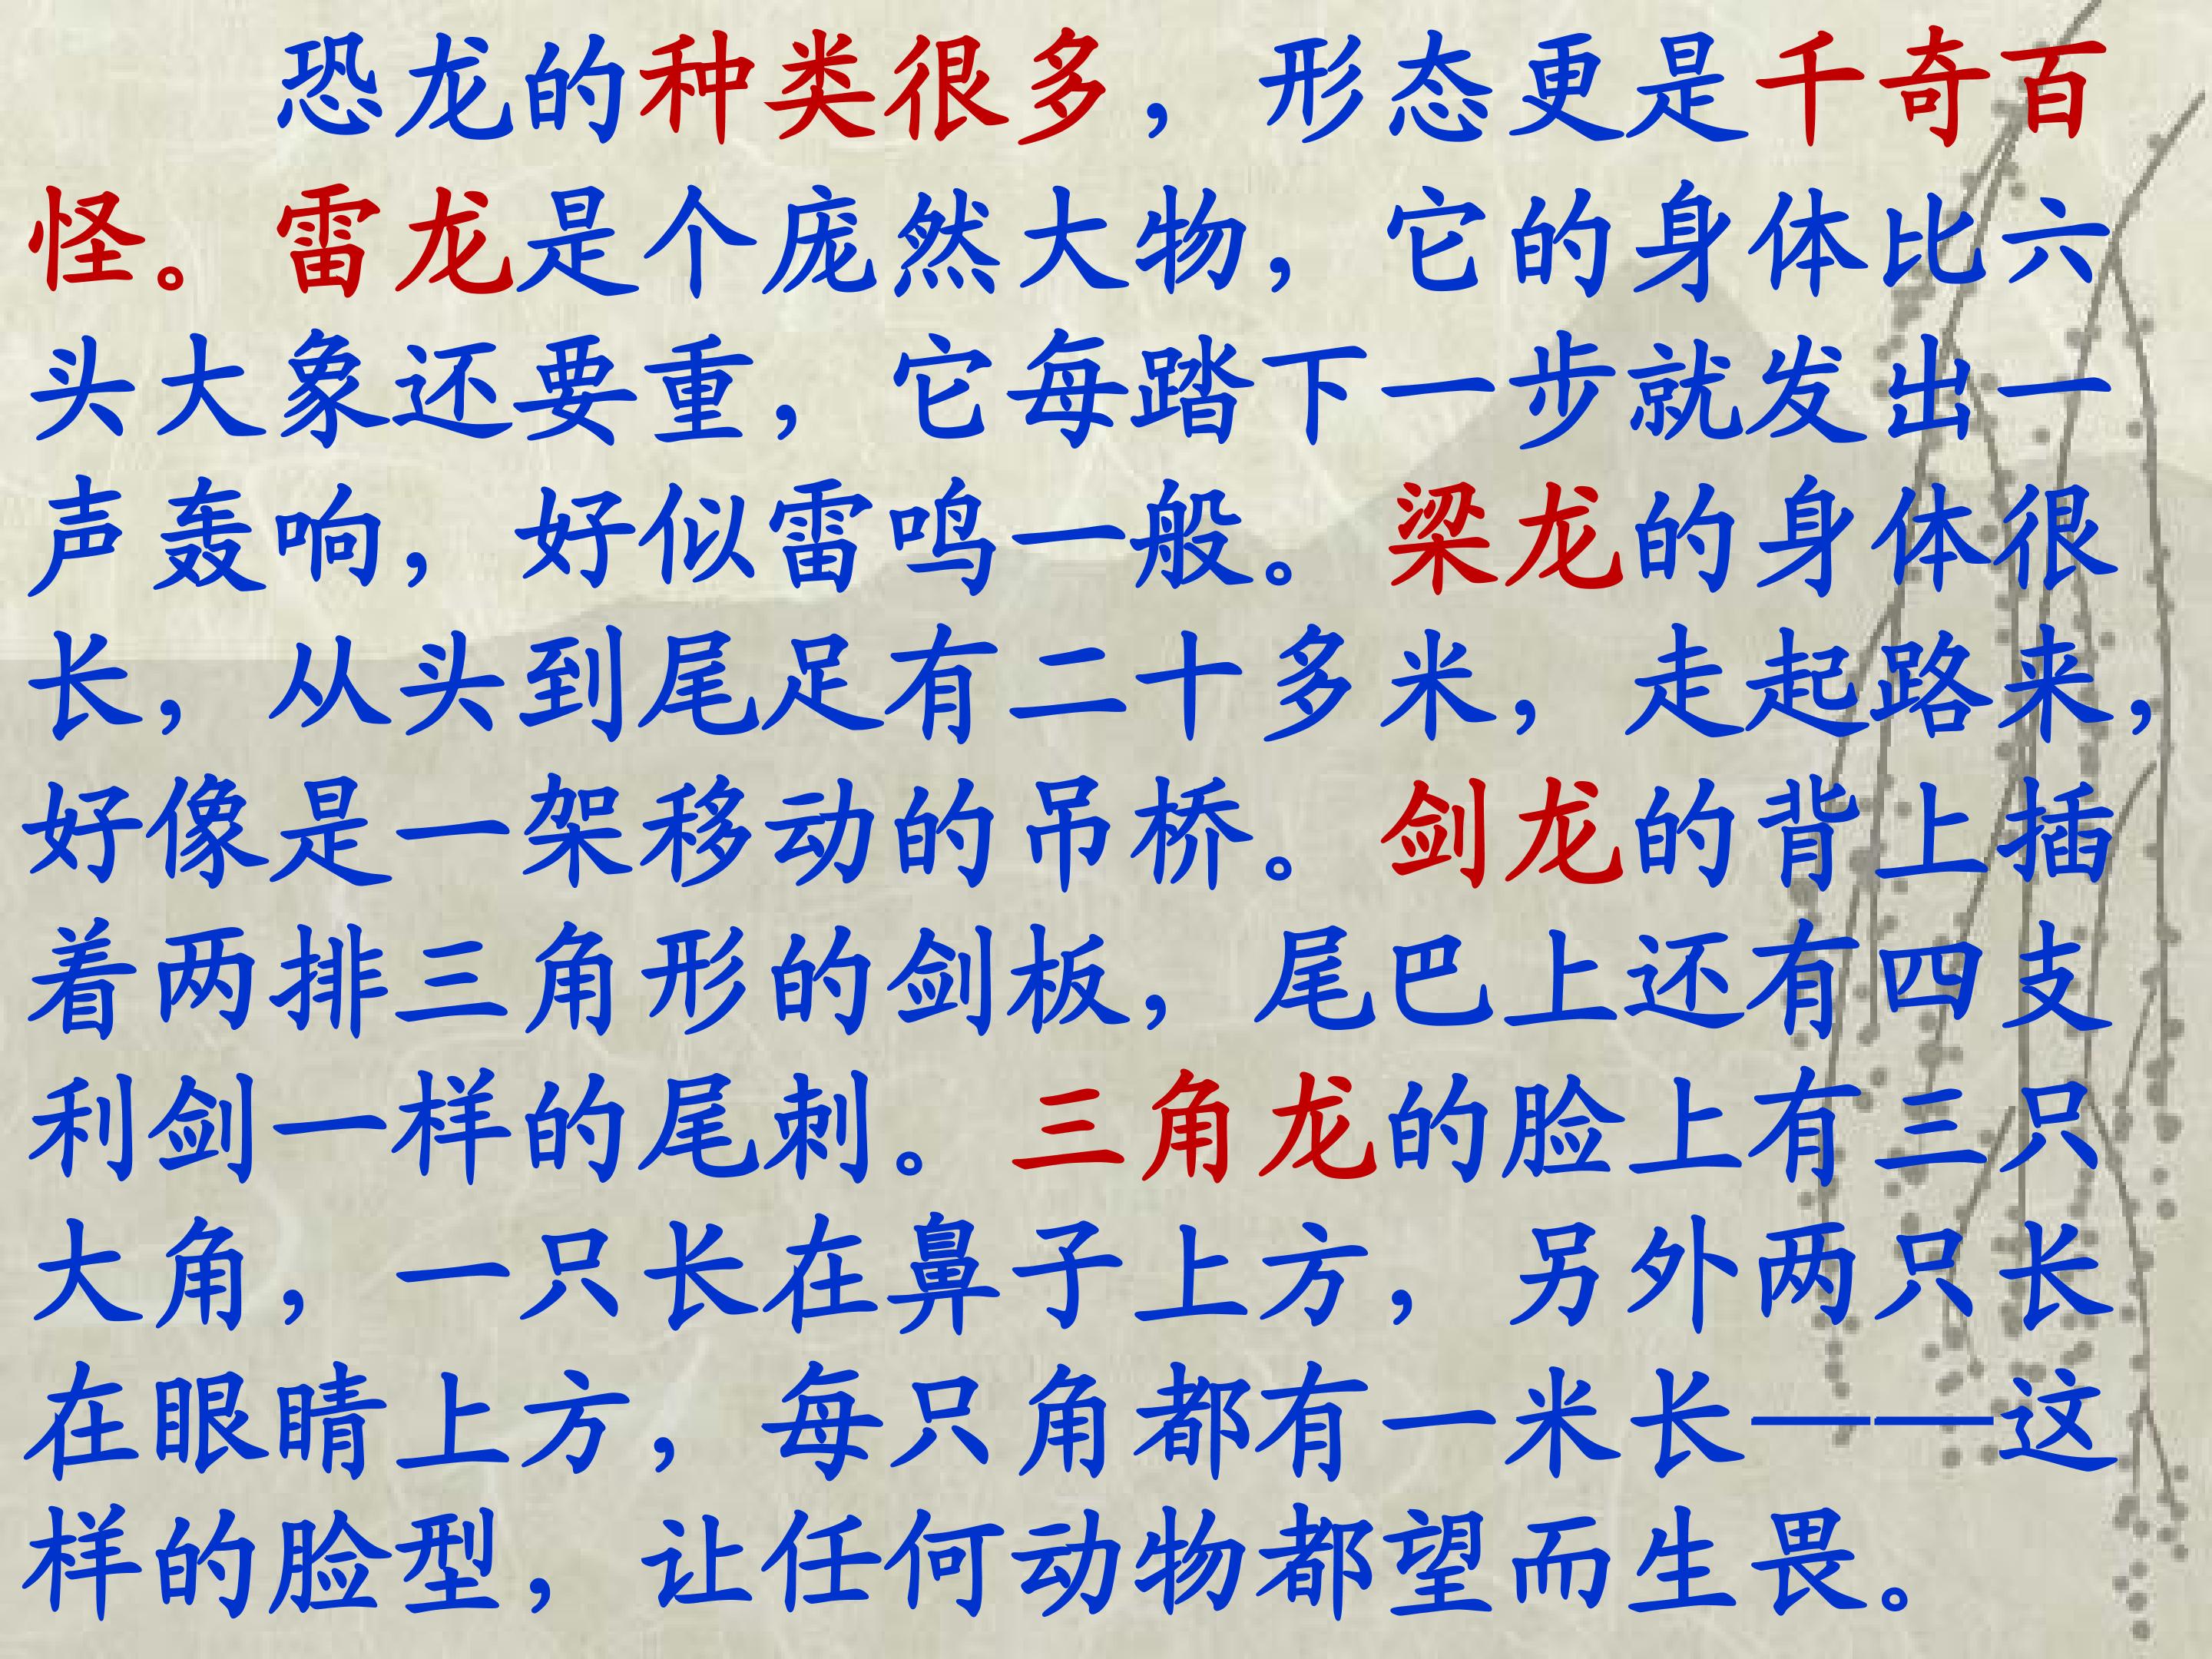 恐龙的种类很多，形态更是千奇百
怪。雷龙是个庞然大物，它的身体比六
头大象还要重，它每踏下一步就发出一
声轰响，好似雷鸣一般。梁龙的身体很
长，从头到尾足有二十多米，走起路来，
好像是一架移动的吊桥。剑龙的背上插
着两排三角形的剑板，尾巴上还有四支
利剑一样的尾刺。三角龙的脸上有三只
大角，一只长在鼻子上方，另外两只长
在眼睛上方，每只角都有一米长——这
样的脸型，让任何动物都望而生畏。